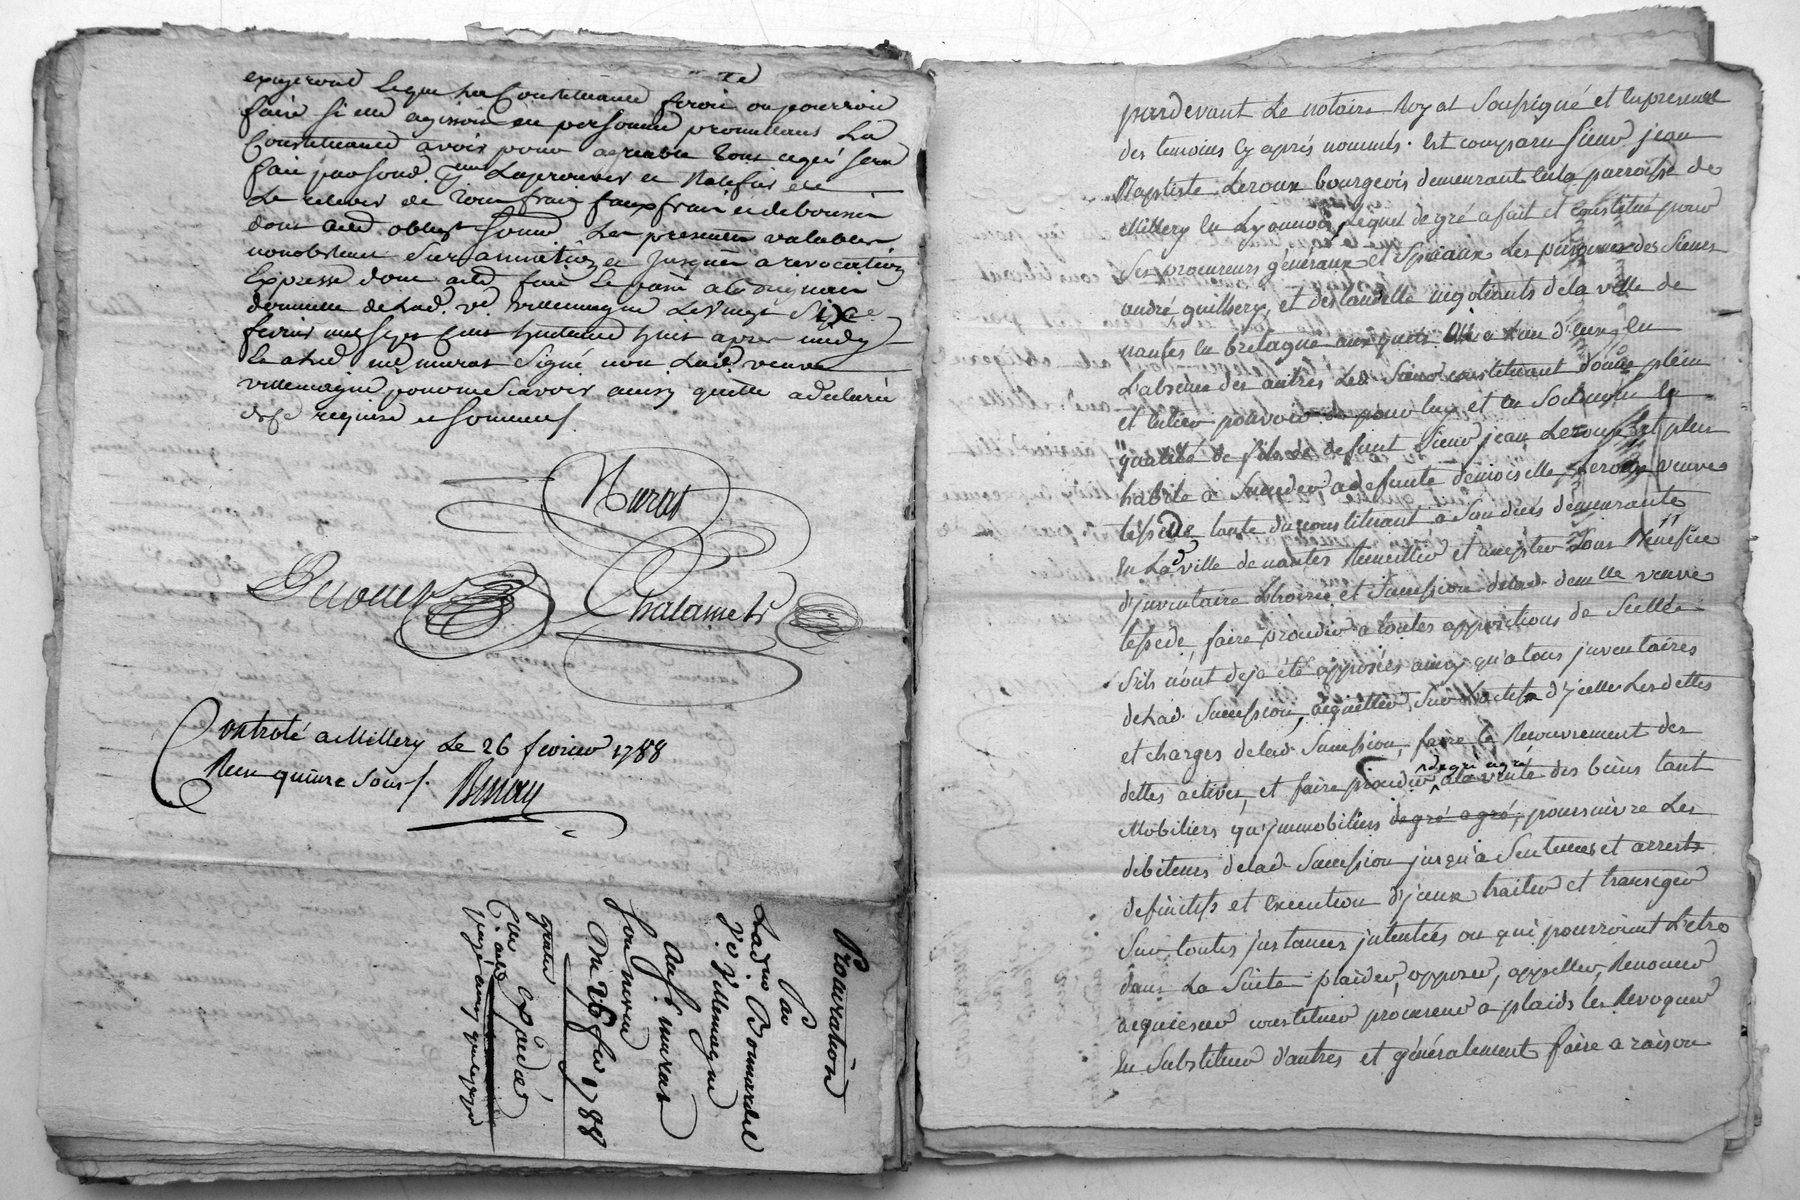 exigeront ce que la Constituante feroit ou pourroit
faire si elle agissoit en personne promettant La
Constituante avoir pour agreable tout ce qui sera
fait par sond. Laprouver et Ratifier et
Le relever de tous frais faux frais et debourses
dont acte oblig. soum. Les presentes valables
nonobstant Surannation et jusques a revocation
Expresse dont acte fait Lu passé a
domicile de Lad. ve. villemagne Le Vingt Six
fevrier mil Sept Cent huitante huit apres midy
Le. murat Signé non Lad. veuve
villemagne pour ne Scavoir ainsy quelle a declaré
de ce requise et Sommée/.
Murat
Chalamet
Controlé a Millery Le 26 fevrier 1788
Recu quinze Sous/.
Procuration
Par
La d.
Ve. Villemagne
Au S. murat
Son neveu
Du 26 fev. 1788
pardevant Le notaire Royal Soussigné et en presence
des temoins cy aprés nommés. est comparu Sieur jean
Baptiste Leroux bourgeois demeurant en la parroisse de
Millery en Lyonnois, Lequel de gré a fait et constitué pour
Ses procureurs généraux et Speciaux Les personnes des Sieurs
andré guilhery, et deslandelle negotiants de la ville de
nantes en bretagne auxquels et a L'un d'eux en
L'absence des autres Led. Sieur constituant donne plein
et entier pouvoir de pour luy et en Son nom en
qualité de fils de defunt Sieur jean Leroux et plus
habile a Succeder a defunte demoiselle Leroux veuve
tessede tante du constituant a Son deces demeurante
en La d. ville de nantes Recueillir et accepter Sous Bénéfice
d'juventaire L'hoirie et Succession de lad. demlle veuve
tessede, faire proceder a toutes appositions de Scellés
S'ils n'ont deja été apposés ainsy qu'a tous juventaires
de Lad. Succession, acquitter Sur L'actif d'jcelle Les dettes
et charges de lad. Succession, faire le Recouvrement des
dettes actives, et faire proceder de gré a gré a la vente des biens tant
Mobiliers qu'jmmobiliers de gré a gré, poursuivre Les
debiteurs de lad. Succession jusqu'à Sentences et arrests
definitifs et execution d'jceux traiter et transiger
Sur toutes jnstances jntentées ou qui pourroient L'etre
dans La Suite plaider, opposer, appeller, Renoncer
acquiescer constituer procureur a plaids les Revoquer
en Substituer d'autres et généralement faire a raison